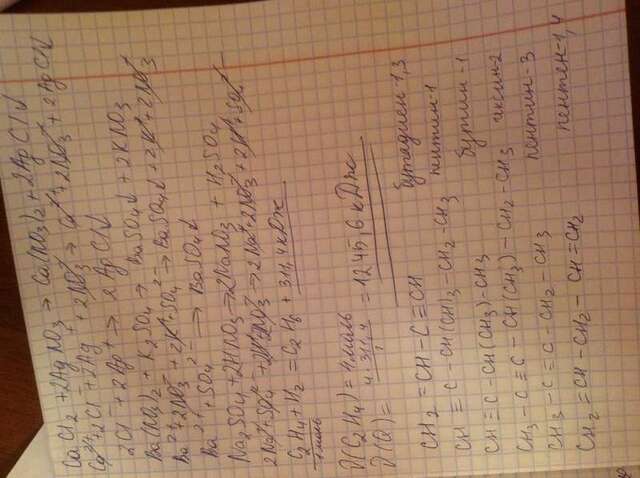 CaCl2 + 2AgNO3 → Ca(NO3)2 + 2AgCl↓
Ca2+ + 2Cl- + 2Ag+ + 2NO3- → Ca2+ + 2NO3- + 2AgCl↓
2Cl- + 2Ag+ → 2AgCl↓
Ba(NO3)2 + K2SO4 → BaSO4↓ + 2KNO3
Ba2+ + 2NO3- + 2K+ + SO4 2- → BaSO4↓ + 2K+ + 2NO3-
Ba2+ + SO4 2- → BaSO4↓
Na2SO4 + 2HNO3 → 2NaNO3 + H2SO4
C2H4 + H2 = C2H6 + 311,4 кДж
1 моль
(C2H4) = 4 моль
(Q) = 4·311,4 / 1 = 1245,6 кДж
CH2 = CH - C ≡ CH бутадиен-1,3
CH ≡ C - CH(CH3) - CH2 - CH3 пентин-1
CH ≡ C - CH(CH3) - CH3 бутин-1
CH3 - C ≡ C - CH(CH3) - CH2 - CH3 гексин-2
CH3 - C = C - CH2 - CH3 пентин-3
CH2 = CH - CH2 - CH = CH2 пентен-1,4